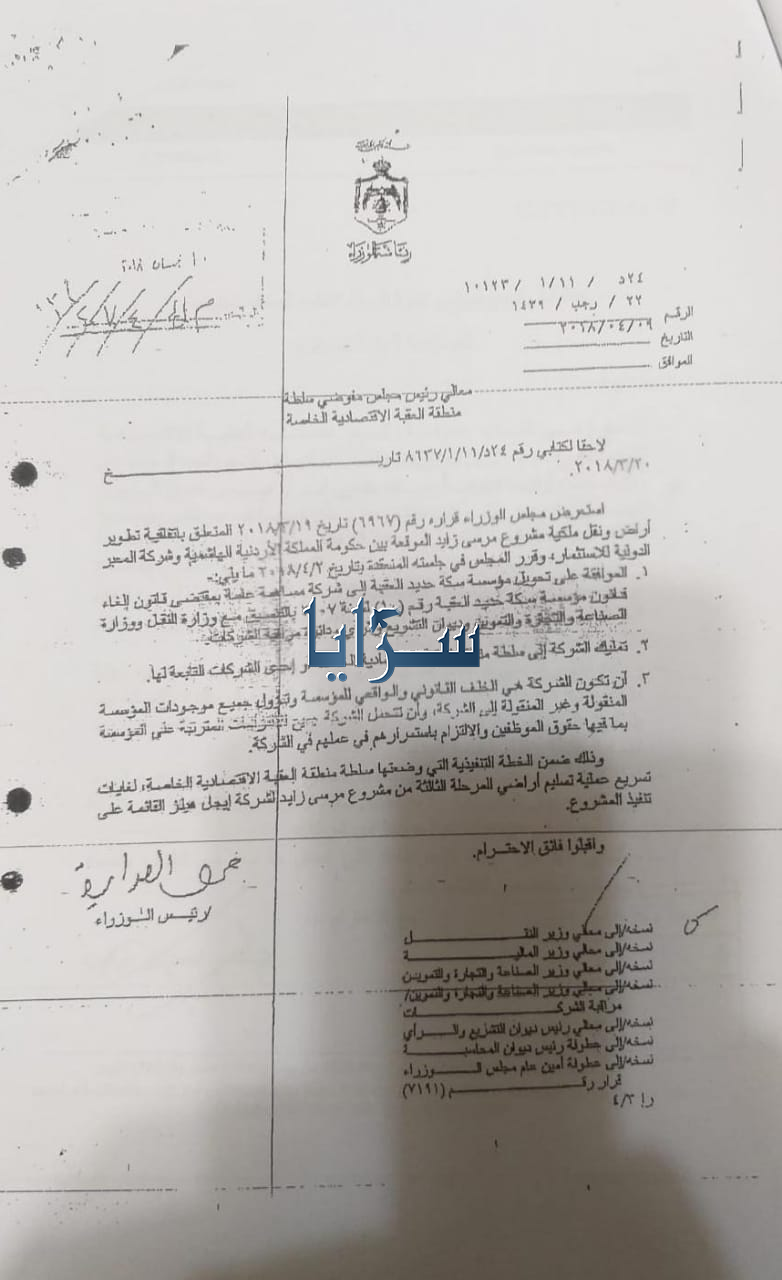 رئاسة الوزراء
١٠ نيسان ٢٠١٨
الرقم ٢٤د / ١/١١ / ١٠١٢٣
التاريخ ٢٢ / رجب / ١٤٣٩
الموافق ٢٠١٨/٠٤/٠٩
معالي رئيس مجلس مفوضي سلطة
منطقة العقبة الاقتصادية الخاصة
لاحقا لكتابي رقم ٢٤د/١/١١/٨٦٣٧ تاريخ
٢٠١٨/٣/٢٠.
استعرض مجلس الوزراء قراره رقم (٦٩٦٧) تاريخ ٢٠١٨/٣/١٩ المتعلق باتفاقية تطوير
أراض ونقل ملكية مشروع مرسى زايد الموقعة بين حكومة المملكة الأردنية الهاشمية وشركة المعبر
الدولية للاستثمار، وقرر المجلس في جلسته المنعقدة بتاريخ ٢٠١٨/٤/٢ ما يلي:-
١. الموافقة على تحويل مؤسسة سكة حديد العقبة إلى شركة مساهمة عامة بمقتضى قانون إلغاء
قانون مؤسسة سكة حديد العقبة رقم لسنة بالتنسيق مع وزارة النقل ووزارة
الصناعة والتجارة والتموين وديوان التشريع والرأي ودائرة مراقبة الشركات.
٢. تمليك الشركة إلى سلطة أو إحدى الشركات التابعة لها.
٣. أن تكون الشركة هي الخلف القانوني والواقعي للمؤسسة وتؤول جميع موجودات المؤسسة
المنقولة وغير المنقولة إلى الشركة، وأن تتحمل الشركة جميع الالتزامات المترتبة على المؤسسة
بما فيها حقوق الموظفين والالتزام باستمرارهم في عملهم في الشركة.
وذلك ضمن الخطة التنفيذية التي وضعتها سلطة منطقة العقبة الاقتصادية الخاصة، لغايات
تسريع عملية تسليم أراضي المرحلة الثالثة من مشروع مرسى زايد لشركة إيجل هيلز القائمة على
تنفيذ المشروع.
واقبلوا فائق الاحترام.
ع/رئيس الوزراء
نسخة/إلى معالي وزير النقل
نسخة/إلى معالي وزير المالية
نسخة/إلى معالي وزير الصناعة والتجارة والتموين
نسخة/إلى معالي وزير الصناعة والتجارة والتموين/
مراقبة الشركات
نسخة/إلى معالي رئيس ديوان التشريع والرأي
نسخة/إلى عطوفة رئيس ديوان المحاسبة
نسخة/إلى عطوفة أمين عام مجلس الوزراء
قرار رقم (٧١٩١)
٤/٣
سرايا